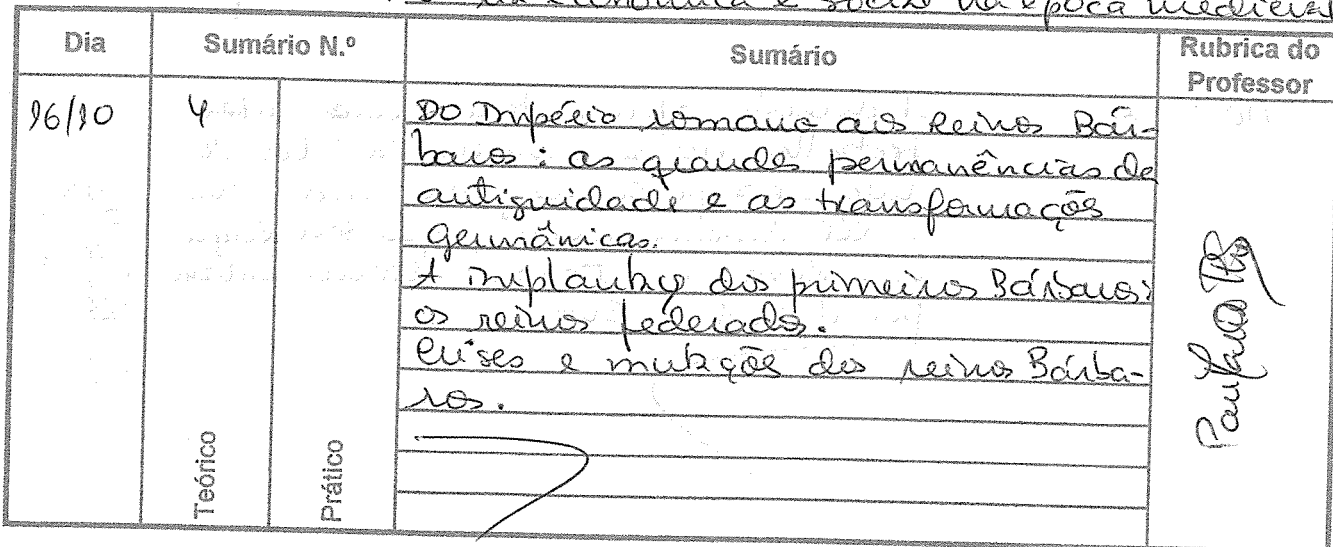 económica e social na época medieval
Dia
Sumário N.º
Sumário
Rubrica do
Professor
16/10
4
Do Império romano aos Reinos Bár-
baros: as grandes permanências da
antiguidade e as transformações
germânicas.
A implantação dos primeiros Bárbaros:
os reinos federados.
Crises e mutações dos reinos Bárba-
ros.
Teórico
Prático